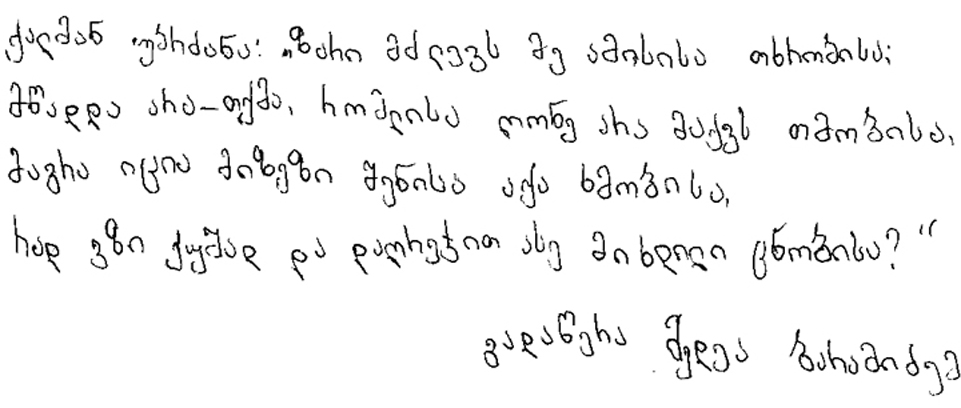 ქალმან უბრძანა: „ზარი მძლევს მე ამისისა თხრობისა;
მწადდა არა–თქმა, რომლისა ღონე არა მაქვს თმობისა,
მაგრა იცია მიზეზი შენისა აქა ხმობისა,
რად ვზი ქუშად და დაღრეჯით ასე მიხდილი ცნობისა?“
გადაწერა მედეა ბარამიძემ